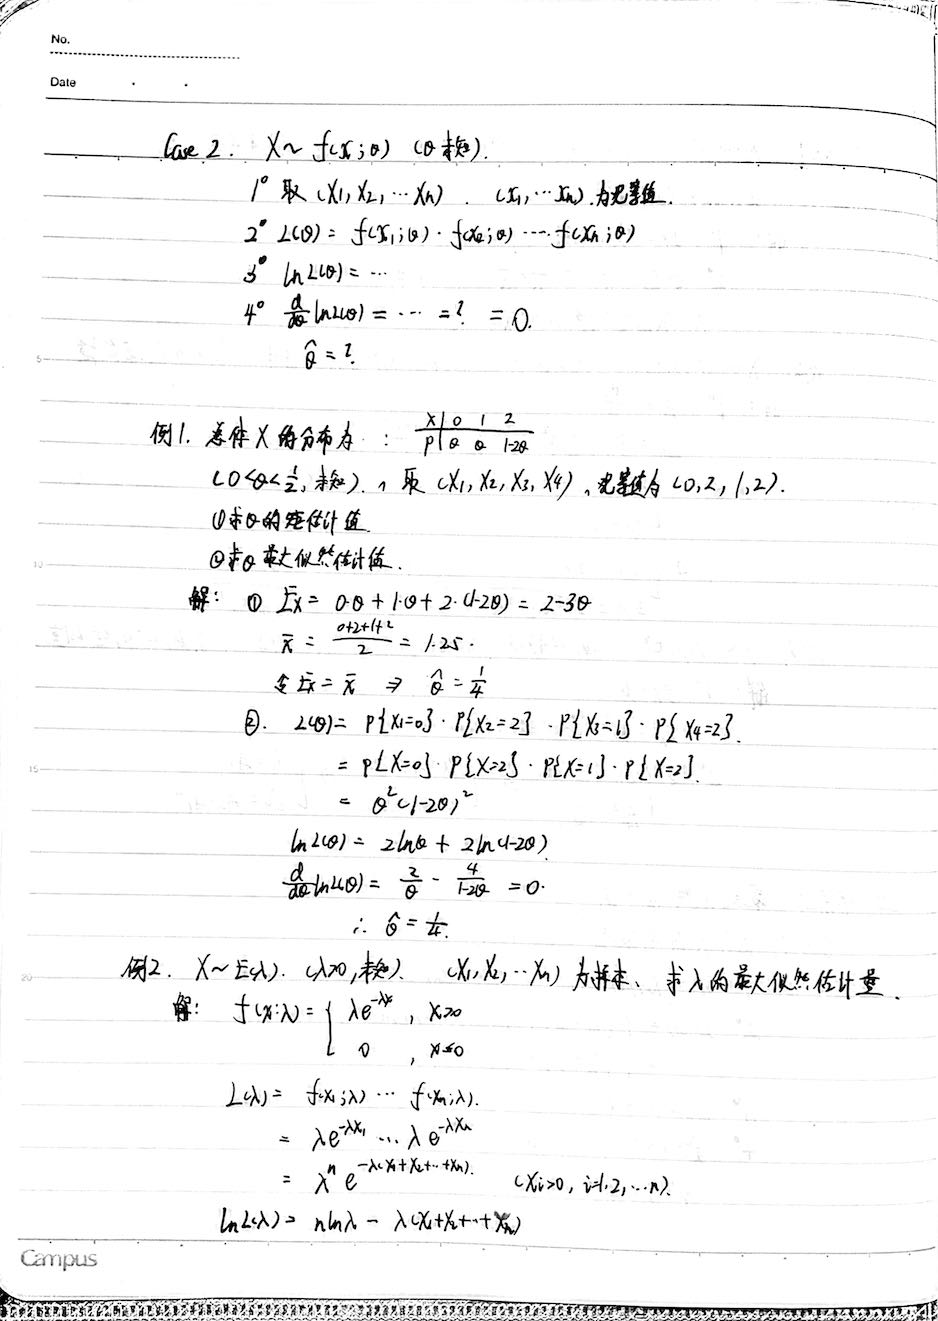 No.
Date
Case 2. X~f(x;θ) (θ未知).
1° 取(X1,X2,…Xn). (x1,…xn).为观察值.
2° L(θ)=f(x1;θ)·f(x2;θ)·…·f(xn;θ)
3° lnL(θ)=…
4° d/dθ lnL(θ)=…=? =0.
θ̂=?
例1. 总体X的分布为: X 0 1 2
P θ θ 1-2θ
(0<θ<1/2,未知).,取(X1,X2,X3,X4),观察值为(0,2,1,2).
①求θ的矩估计值
②求θ最大似然估计值.
解: ① EX=0·θ+1·θ+2·(1-2θ)=2-3θ
x̄=(0+2+1+2)/2=1.25.
令EX=x̄ ⇒ θ̂=1/4
②. L(θ)=P{X1=0}·P{X2=2}·P{X3=1}·P{X4=2}.
=P{X=0}·P{X=2}·P{X=1}·P{X=2}.
=θ²(1-2θ)²
lnL(θ)=2lnθ+2ln(1-2θ)
d/dθ lnL(θ)=2/θ-4/(1-2θ)=0.
∴ θ̂=1/4.
例2. X~E(λ). (λ>0,未知). (X1,X2,…Xn)为样本、求λ的最大似然估计量.
解: f(x;λ)={ λe^{-λx}, x>0
0, x≤0
L(λ)=f(x1;λ)…f(xn;λ).
=λe^{-λx1}…λe^{-λxn}
=λ^n e^{-λ(x1+x2+…+xn)}. (xi>0, i=1,2,…n).
lnL(λ)=nlnλ-λ(x1+x2+…+xn)
Campus